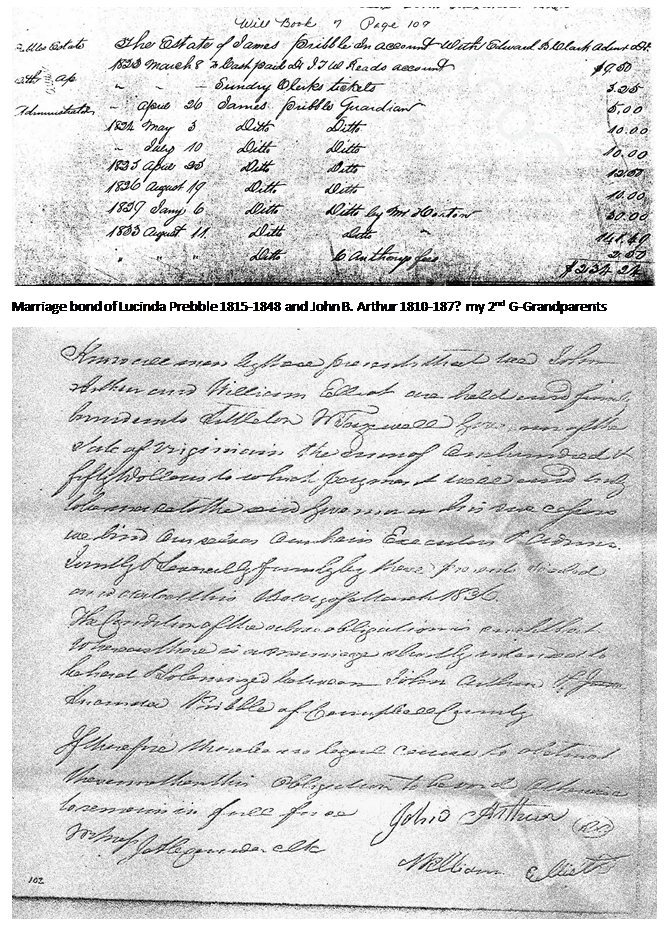 Will Book 7 Page 109
The Estate of James Pribble In account with Edward B Clark Admr Dr
1823 March 8 To Cash paid Dr J T W Reads account $9.50
" " " Sundry Clerks tickets 3.25
" April 26 James Pribble Guardian 5.00
Administrator
1824 May 3 Ditto Ditto 10.00
" July 10 Ditto Ditto 10.00
1825 April 23 Ditto Ditto
1826 August 19 Ditto Ditto 10.00
1829 Jany 6 Ditto Ditto by Mr Horton 30.00
1833 August 11 Ditto Ditto "
" " " Ditto C Anthony fees 2.50
Marriage bond of Lucinda Prebble 1815-1848 and John B. Arthur 1810-187? my 2nd G-Grandparents
Know all men by these presents that we John
Arthur and William Elliot are held and firmly
bound unto Littleton W Tazewell Governor of the
State of Virginia in the sum of One hundred &
fifty Dollars to which payment well and truly
to be made to the said Governor or his successors
we bind ourselves our heirs Executors & Admrs.
Jointly & Severally firmly by these presents Sealed
and dated this day of March 1836
The Condition of the above obligation is such that
Whereas there is a marriage shortly intended to
be had & Solemnized between John Arthur &
Lucinda Pribble of Campbell County
If therefore there be no legal cause to obstruct
then this Obligation to be void otherwise
to remain in full force John Arthur
Alexander Clk William Elliott
102